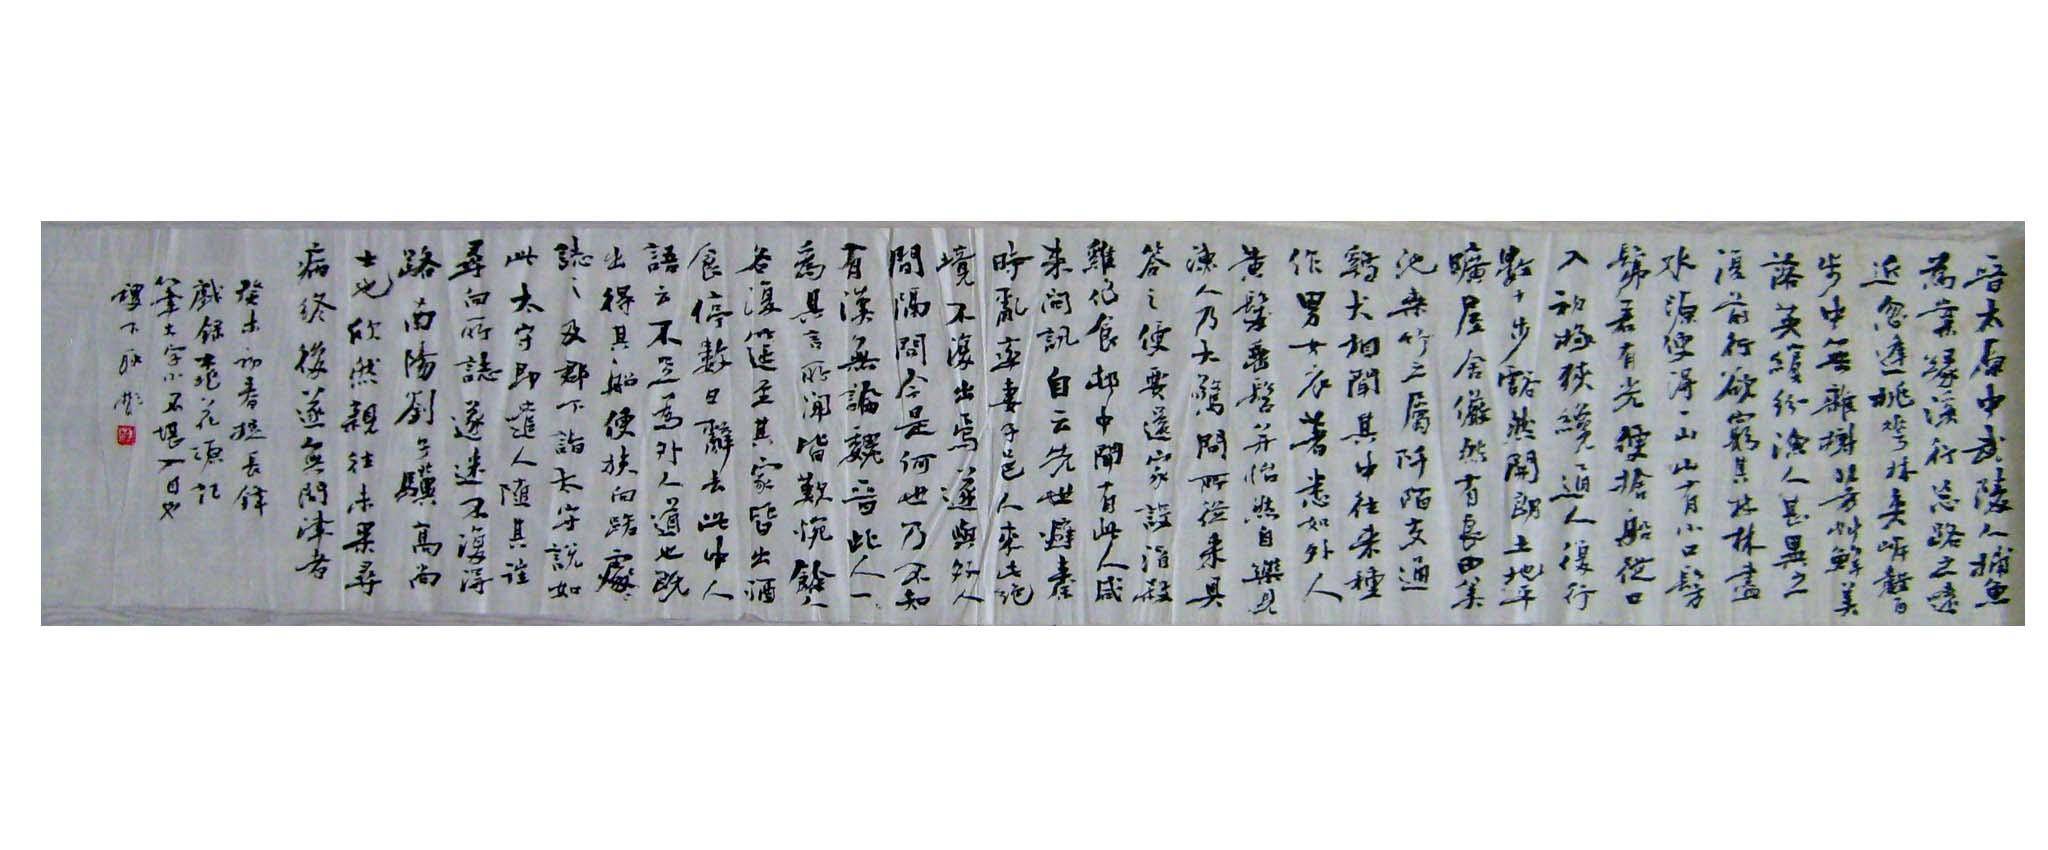 晉太原中武陵人捕魚
為業緣溪行忘路之遠
近忽逢桃花林夾岸數百
步中無雜樹芳艸鮮美
落英繽紛漁人甚異之
復前行欲窮其林林盡
水源便得一山山有小口髣
髴若有光便捨船從口
入初極狹纔通人復行
數十步豁然開朗土地平
曠屋舍儼然有良田美
池桑竹之屬阡陌交通
雞犬相聞其中往來種
作男女衣著悉如外人
黃髮垂髫并怡然自樂見
漁人乃大驚問所從來具
答之便要還家設酒殺
雞作食邨中聞有此人咸
来問訊自云先世避秦
時亂率妻子邑人來此絕
境不復出焉遂與外人
間隔問今是何世乃不知
有漢無論魏晉此人一
為具言所聞皆歎惋餘人
各復延至其家皆出酒
食停數日辭去此中人
語云不足為外人道也既
出得其船便扶向路處處
誌之及郡下詣太守說如
此太守即遣人隨其往
尋向所誌遂迷不復得
路南陽劉子驥高尚
士也欣然親往未果尋
病終後遂無問津者
癸未初春 長鋒
戲錄桃花源記
大字小不堪入目也